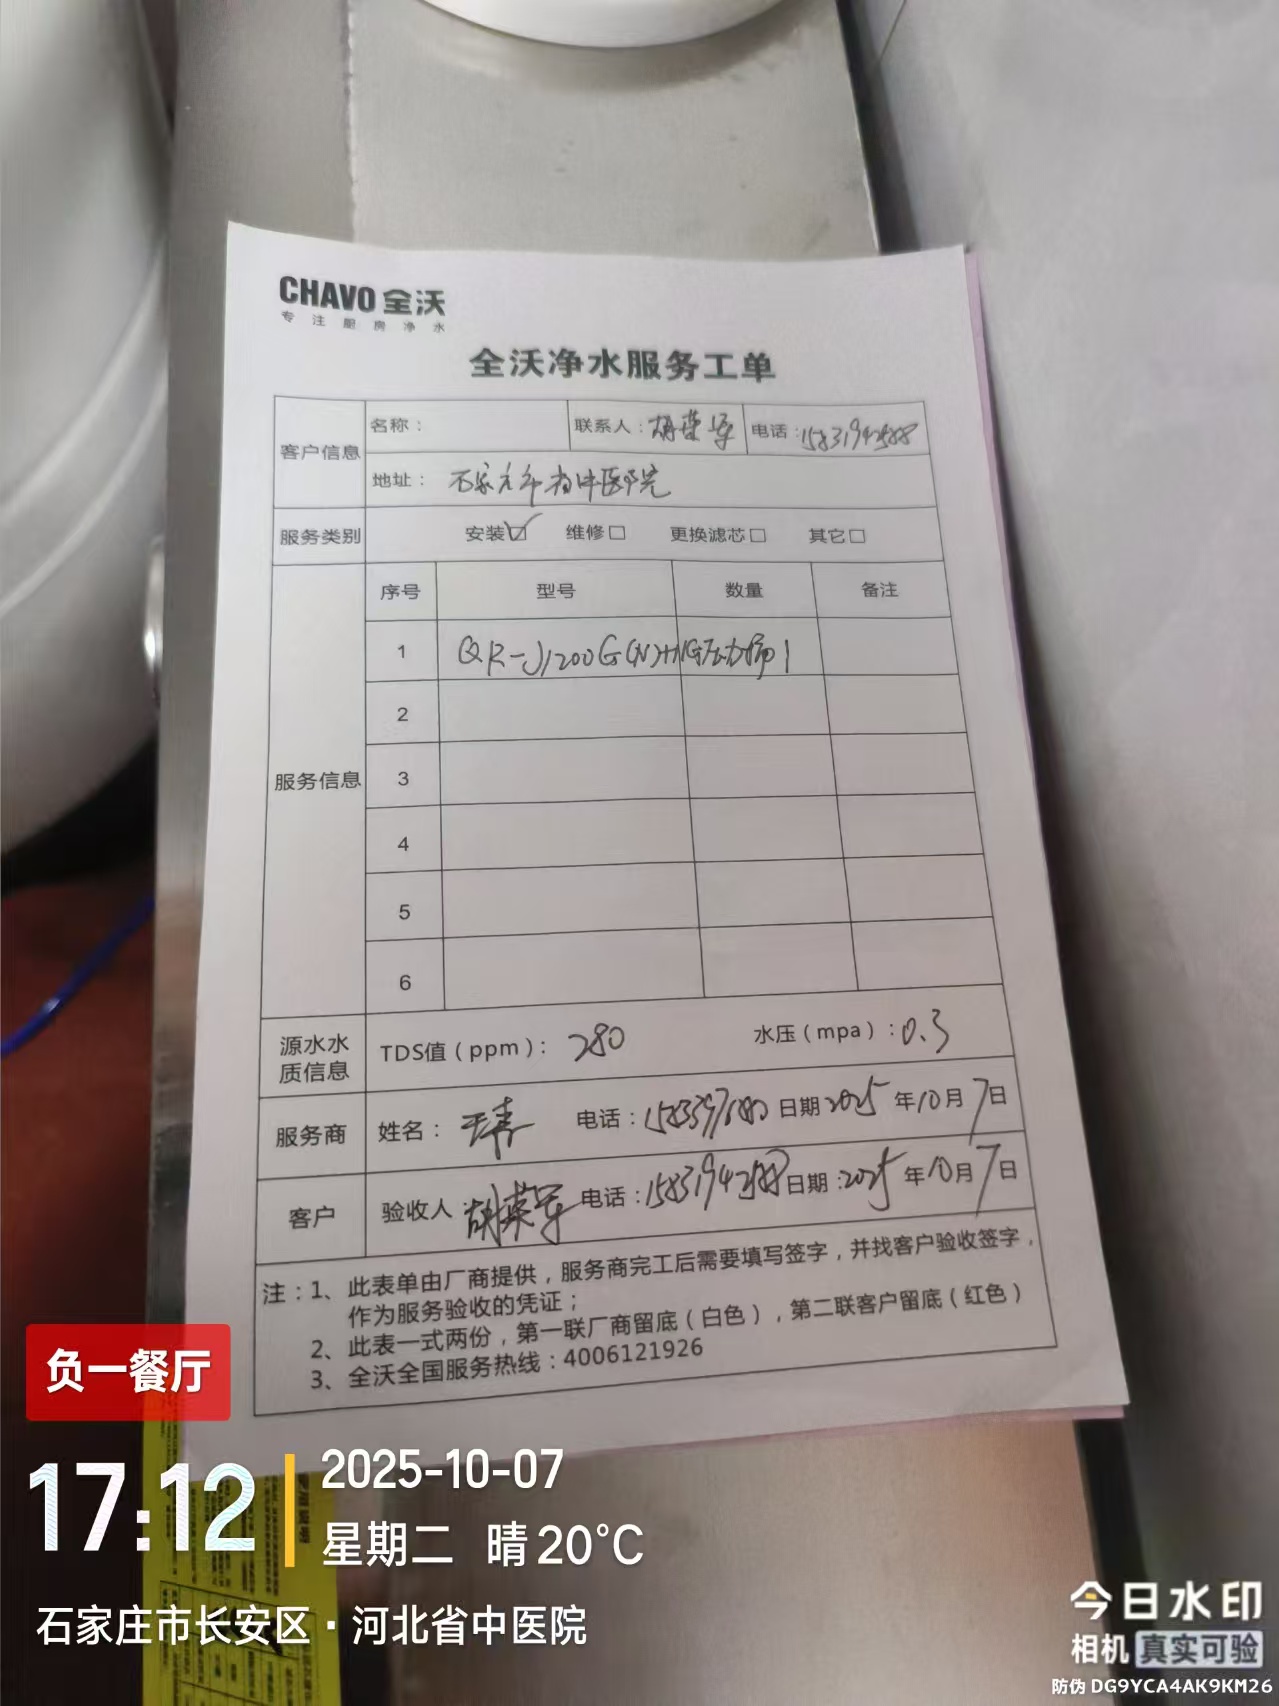 CHAVO 全沃
专注厨房净水
全沃净水服务工单
客户信息
名称：
联系人：胡荣军
电话：15831942588
地址：石家庄市省中医院
服务类别
安装☑ 维修□ 更换滤芯□ 其它□
服务信息
序号 型号 数量 备注
1 QR-J1200G(N)+11G压力桶 1
2
3
4
5
6
源水水质信息
TDS值（ppm）：280 水压（mpa）：0.3
服务商
姓名： 电话： 日期 2025年10月7日
客户
验收人：胡荣军 电话：15831942588 日期：2025年10月7日
注：1、此表单由厂商提供，服务商完工后需要填写签字，并找客户验收签字，
作为服务验收的凭证；
2、此表一式两份，第一联厂商留底（白色），第二联客户留底（红色）
3、全沃全国服务热线：4006121926
负一餐厅
17:12
2025-10-07
星期二 晴 20°C
石家庄市长安区·河北省中医院
今日水印
相机 真实可验
防伪 DG9YCA4AK9KM26